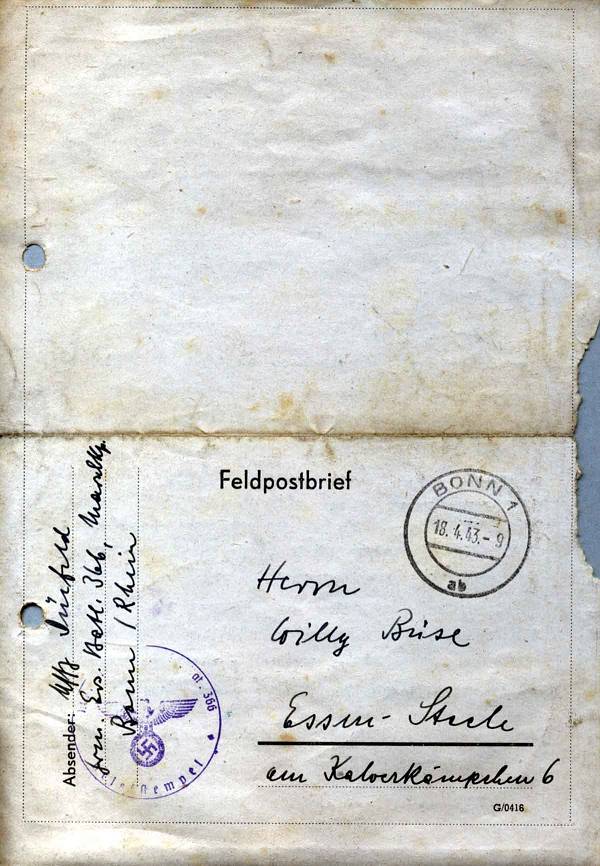 Feldpostbrief
BONN 1
18.4.43.-9
ab
Herrn
Willy Büse
Essen-Steele
am Kalverkämpchen 6
G/0416
Absender:
Gren. Ers. Batl. 366, Marschkp.
Bonn / Rhein
366